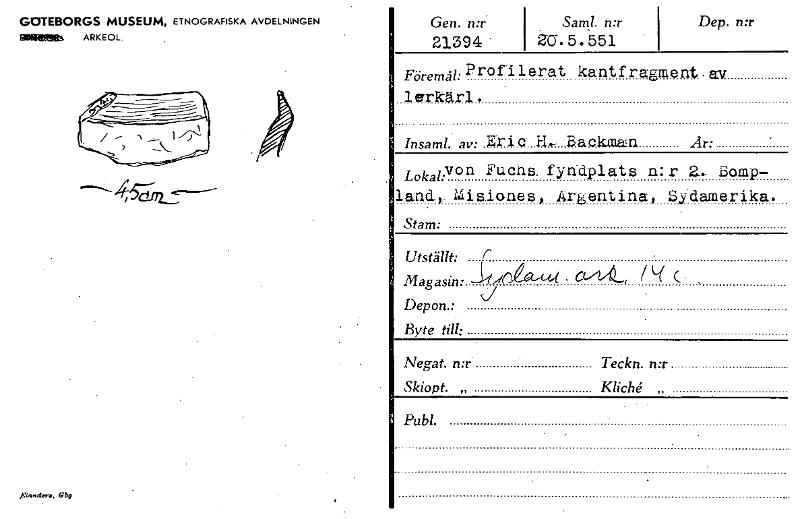 GÖTEBORGS MUSEUM, ETNOGRAFISKA AVDELNINGEN
ARKEOL.
4,5cm
Elanders, Gbg
Gen. n:r Saml. n:r Dep. n:r
21394 20.5.551
Föremål: Profilerat kantfragment av
lerkärl.
Insaml. av: Eric H. Backman År:
Lokal: von Fuchs fyndplats n:r 2. Bomp-
land, Misiones, Argentina, Sydamerika.
Stam:
Utställt:
Magasin: Sydam. ark. 14 c
Depon.:
Byte till:
Negat. n:r Teckn. n:r
Skiopt. „ Kliché „
Publ.